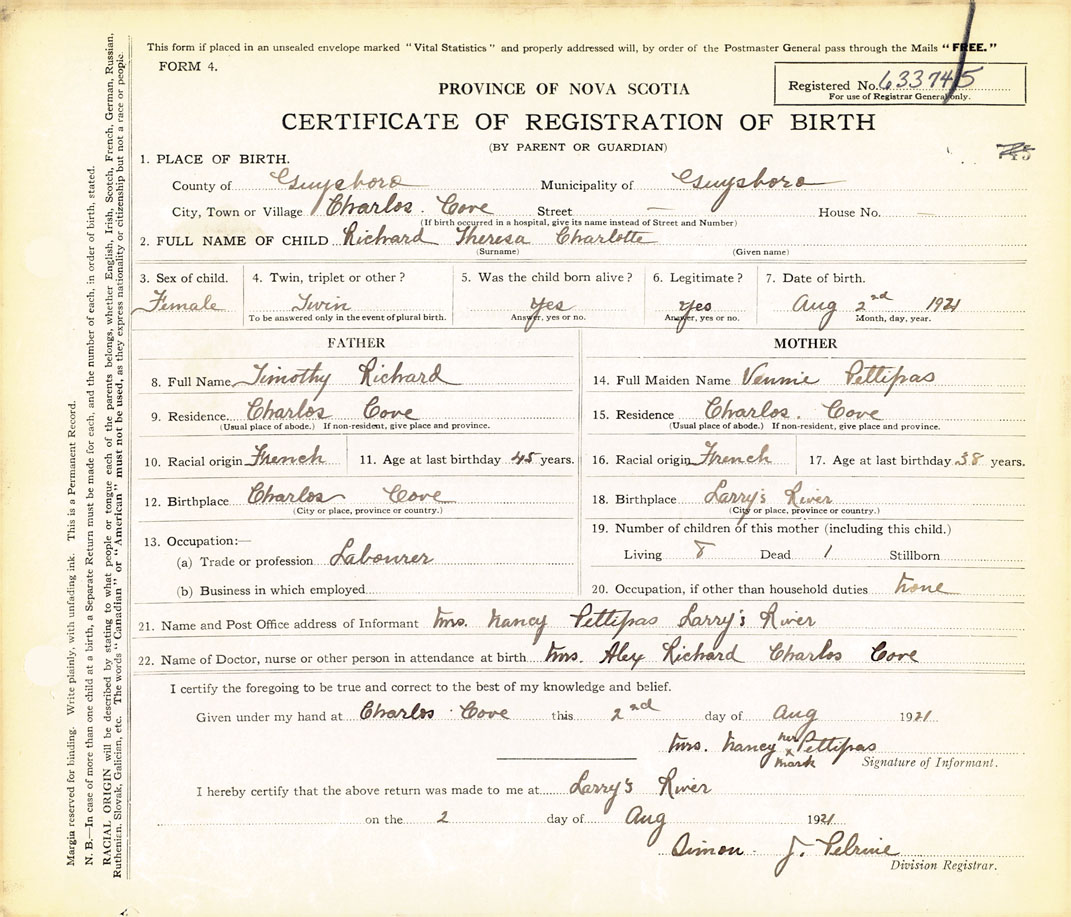 This form if placed in an unsealed envelope marked "Vital Statistics" and properly addressed will, by order of the Postmaster General pass through the Mails "FREE."
FORM 4.
Registered No. 633745
For use of Registrar General only.
PROVINCE OF NOVA SCOTIA
CERTIFICATE OF REGISTRATION OF BIRTH
(BY PARENT OR GUARDIAN)
1. PLACE OF BIRTH.
County of Guysboro Municipality of Guysboro
City, Town or Village Charlos Cove Street — House No. —
(If birth occurred in a hospital, give its name instead of Street and Number)
2. FULL NAME OF CHILD Richard Theresa Charlotte
(Surname) (Given name)
3. Sex of child. 4. Twin, triplet or other? 5. Was the child born alive? 6. Legitimate? 7. Date of birth.
Female Twin Yes Yes Aug 2nd 1921
To be answered only in the event of plural birth. Answer, yes or no. Answer, yes or no. Month, day, year.
FATHER MOTHER
8. Full Name Timothy Richard 14. Full Maiden Name Vennie Pettipas
9. Residence Charlos Cove 15. Residence Charlos. Cove
(Usual place of abode.) If non-resident, give place and province. (Usual place of abode.) If non-resident, give place and province.
10. Racial origin French 11. Age at last birthday 45 years. 16. Racial origin French 17. Age at last birthday 38 years.
12. Birthplace Charlos Cove 18. Birthplace Larry's River
(City or place, province or country.) (City or place, province or country.)
13. Occupation:— 19. Number of children of this mother (including this child.)
(a) Trade or profession Labourer Living 8 Dead 1 Stillborn
(b) Business in which employed 20. Occupation, if other than household duties none
21. Name and Post Office address of Informant Mrs. Nancy Pettipas Larry's River
22. Name of Doctor, nurse or other person in attendance at birth Mrs. Alex Richard Charlos Cove
I certify the foregoing to be true and correct to the best of my knowledge and belief.
Given under my hand at Charlos Cove this 2nd day of Aug 1921
Mrs. Nancy her x mark Pettipas
Signature of Informant.
I hereby certify that the above return was made to me at Larry's River
on the 2 day of Aug 1921
Simon J. Pelrine
Division Registrar.
Margin reserved for binding. Write plainly, with unfading ink. This is a Permanent Record.
N. B.—In case of more than one child at a birth, a Separate Return must be made for each, and the number of each, in order of birth, stated.
RACIAL ORIGIN will be described by stating to what people or tongue each of the parents belongs, whether English, Irish, Scotch, French, German, Russian,
Ruthenian, Slovak, Galician, etc. The words "Canadian" or "American" must not be used, as they express nationality or citizenship but not a race or people.